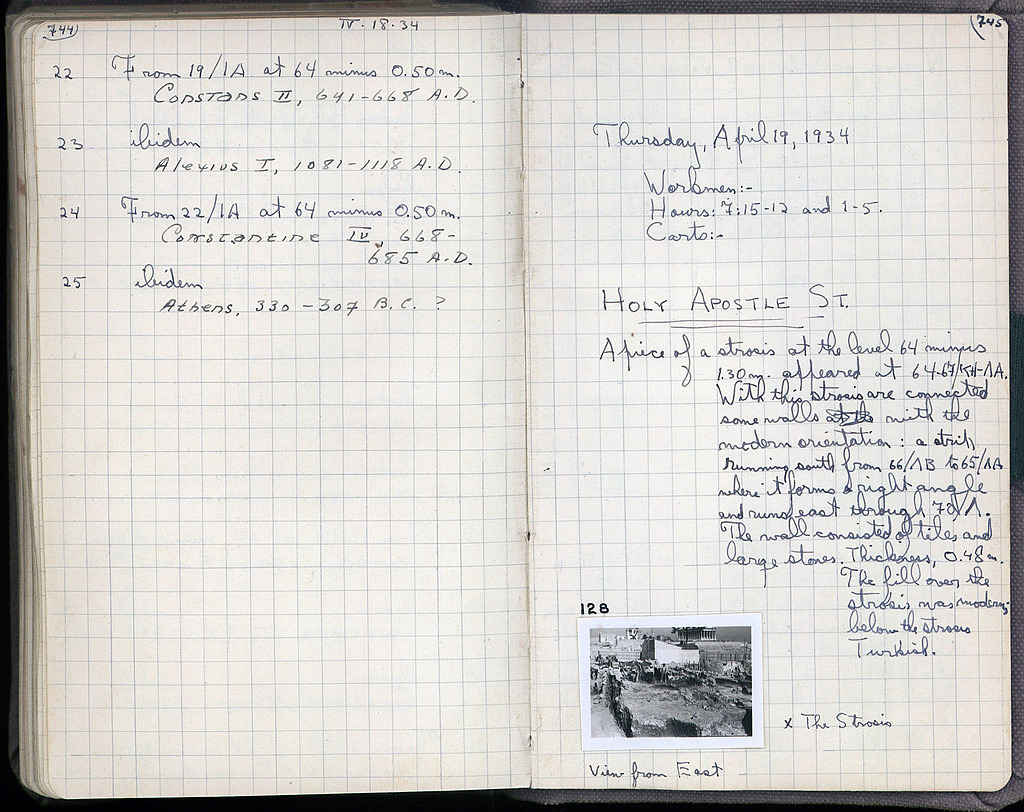 744
IV · 18 · 34
22 From 19/ΛA at 64 minus 0.50 m.
Constans II, 641-668 A.D.
23 ibidem
Alexius I, 1081-1118 A.D.
24 From 22/ΛA at 64 minus 0.50 m.
Constantine IV, 668-
685 A.D.
25 ibidem
Athens, 330-307 B.C. ?
745
Thursday, April 19, 1934
Workmen:-
Hours: 7:15-12 and 1-5.
Carts:-
HOLY APOSTLE ST.
A piece of a strosis at the level 64 minus
1.30 m. appeared at 64-67/KH-ΛA.
With this strosis are connected
some walls with the
modern orientation: a strip
running south from 66/ΛB to 65/ΛA
where it forms a right angle
and runs east through 70/Λ.
The wall consisted of tiles and
large stones. Thickness, 0.48 m.
The fill over the
strosis was modern;
below the strosis
Turkish.
128
x The Strosis
View from East